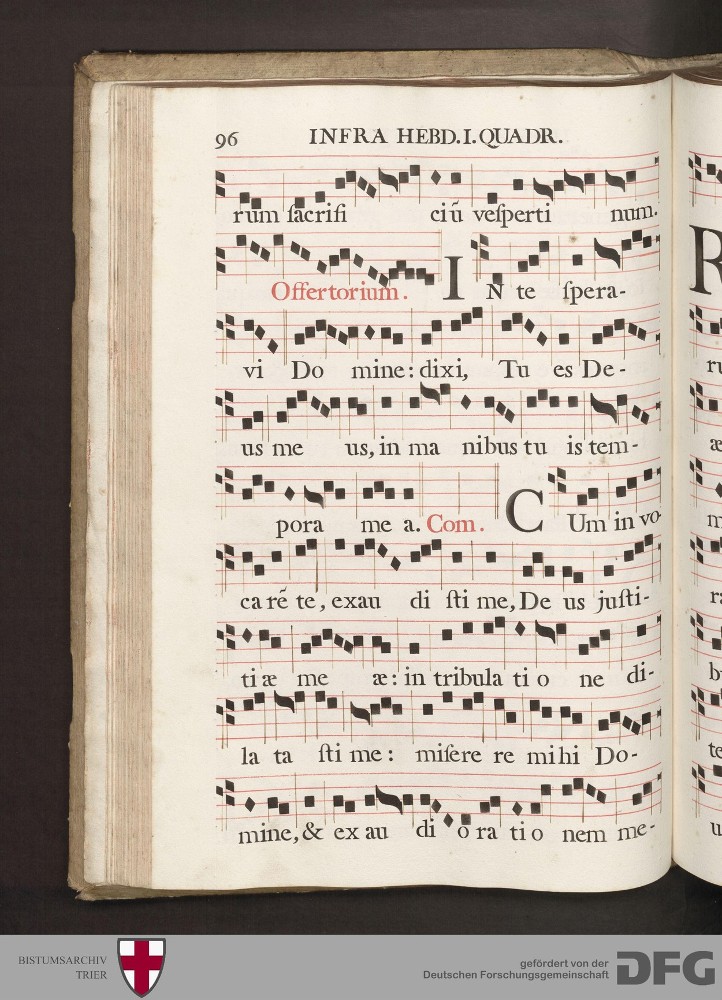 96 INFRA HEBD. I. QUADR.
rum sacrifi ciū vesperti num.
Offertorium. IN te spera-
vi Do mine: dixi, Tu es De-
us me us, in ma nibus tu is tem-
pora me a. Com. CUm in vo-
ca rē te, exau di sti me, De us justi-
ti æ me æ: in tribula ti o ne di-
la ta sti me: misere re mihi Do-
mine, & ex au di o ra ti o nem me-
BISTUMSARCHIV
TRIER
gefördert von der
Deutschen Forschungsgemeinschaft
DFG